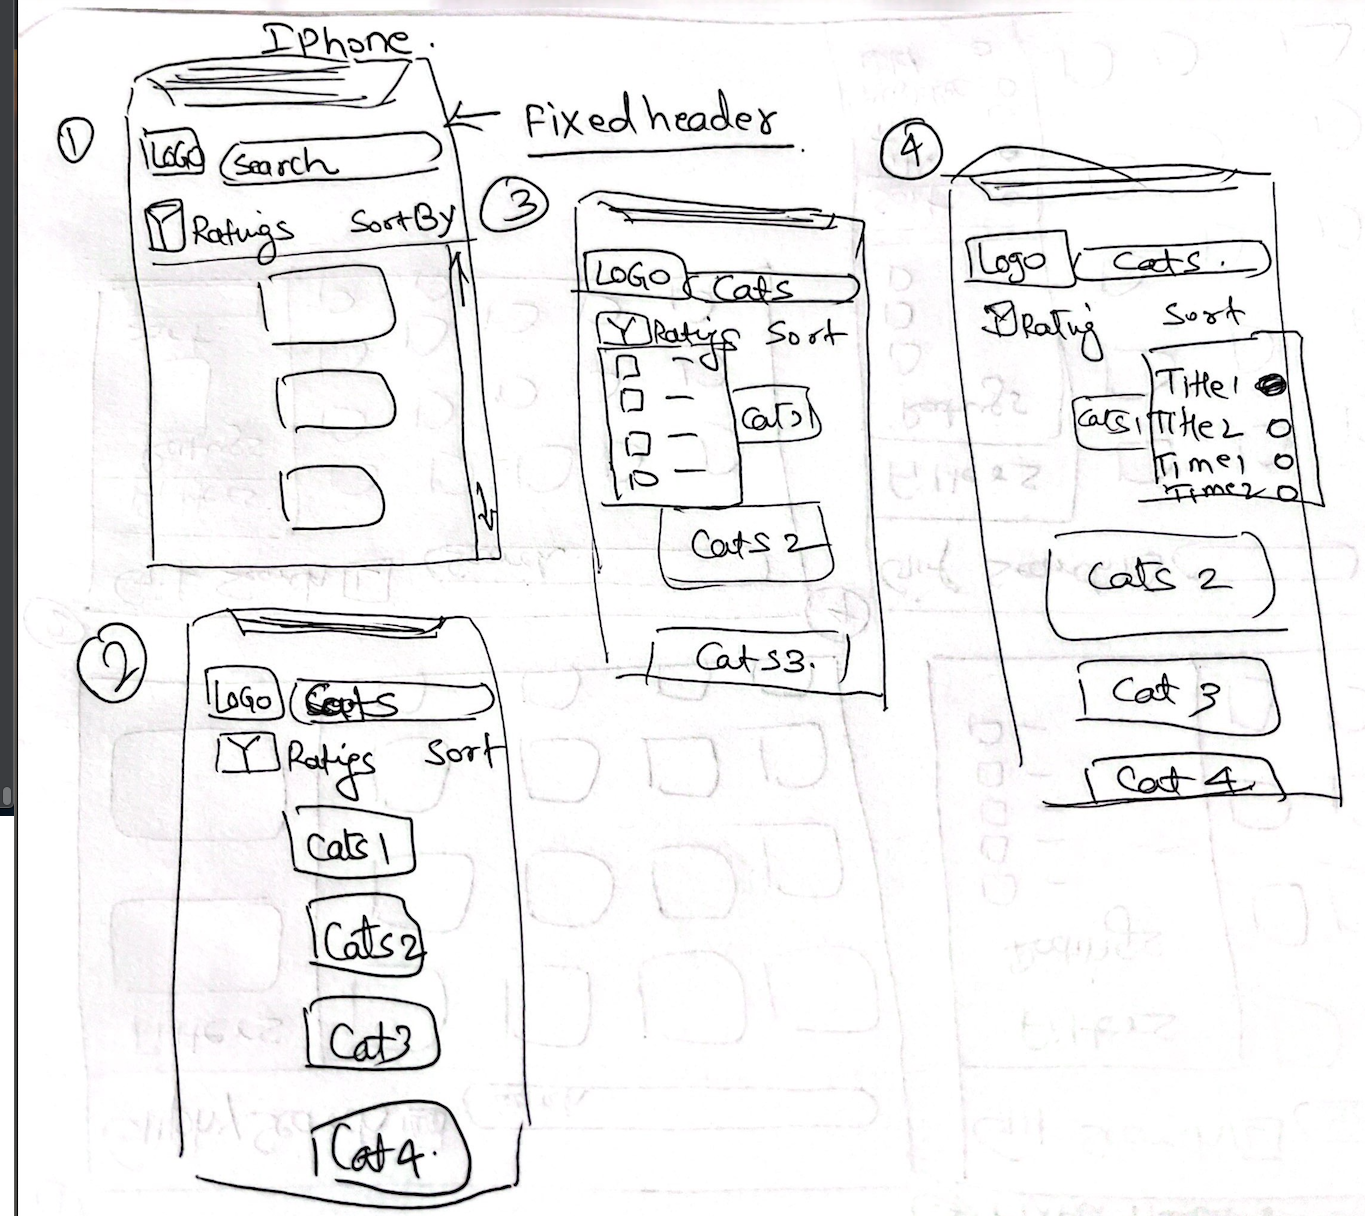 IPhone.
1
LOGO
Search
Ratings
Sort By
Fixed header
2
LOGO
Cats
Ratigs
Sort
Cats 1
Cats 2
Cat 3
Cat 4.
3
LOGO
Cats
Ratigs
Sort
Cats 1
Cats 2
Cats 3.
4
Logo
Cats.
Rating
Sort
Title 1
Cats 1
Title 2
Time 1
Time 2
Cats 2
Cat 3
Cat 4.